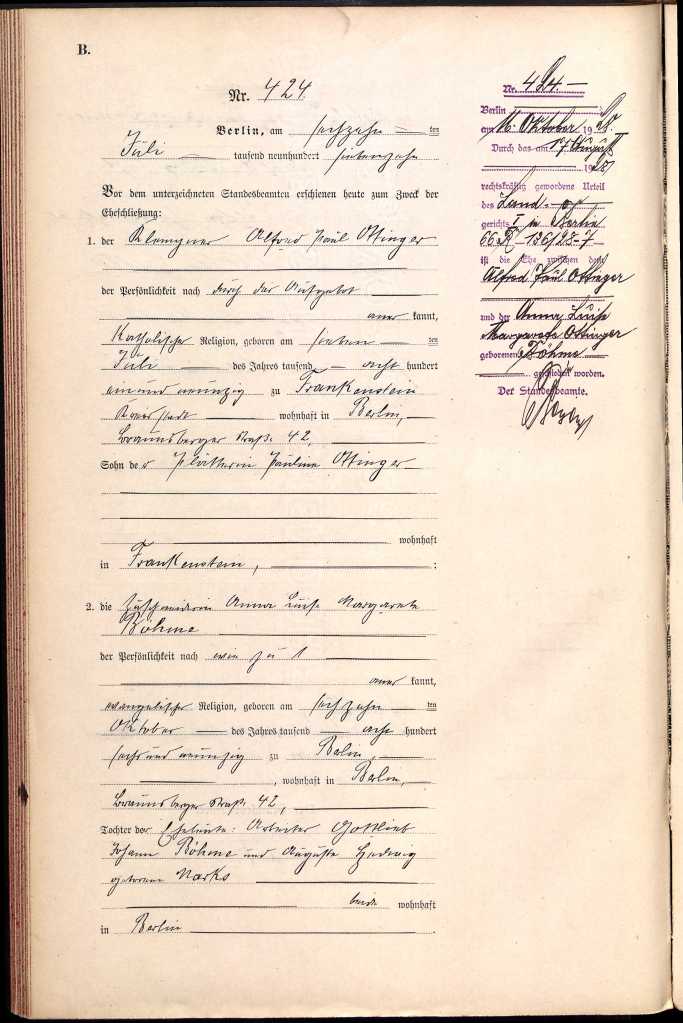 B.
Nr. 424.
Berlin, am sechzehn ten
Juli tausend neunhundert siebenzehn
Vor dem unterzeichneten Standesbeamten erschienen heute zum Zweck der
Eheschließung:
1. der Klempner Alfred Paul Ottinger
der Persönlichkeit nach durch das Aufgebot
aner kannt,
katholischer Religion, geboren am sieben ten
Juli des Jahres tausend acht hundert
einundneunzig zu Frankenstein
wohnhaft in Berlin,
Braunsberger Straße 42,
Sohn der Plätterin Pauline Ottinger
wohnhaft
in Frankenstein, :
2. die Zuschneiderin Anna Luise Margarete
Böhme
der Persönlichkeit nach wie zu 1
aner kannt,
evangelischer Religion, geboren am sechzehn ten
Oktober des Jahres tausend acht hundert
sechsundneunzig zu Berlin,
, wohnhaft in Berlin,
Braunsberger Straße 42,
Tochter der Eheleute: Arbeiter Gottlieb
Johann Böhme und Auguste Hedwig
geborene Marks
beide wohnhaft
in Berlin .
Nr. 424.
Berlin
am 16. Oktober 1928.
Durch das am 17. August
1928
rechtskräftig gewordene Urteil
des Land-
gerichts I in Berlin
66. R. 136/28-7
ist die Ehe zwischen dem
Alfred Paul Ottinger
und der Anna Luise
Margarete Ottinger
geborenen Böhme
geschieden worden.
Der Standesbeamte.